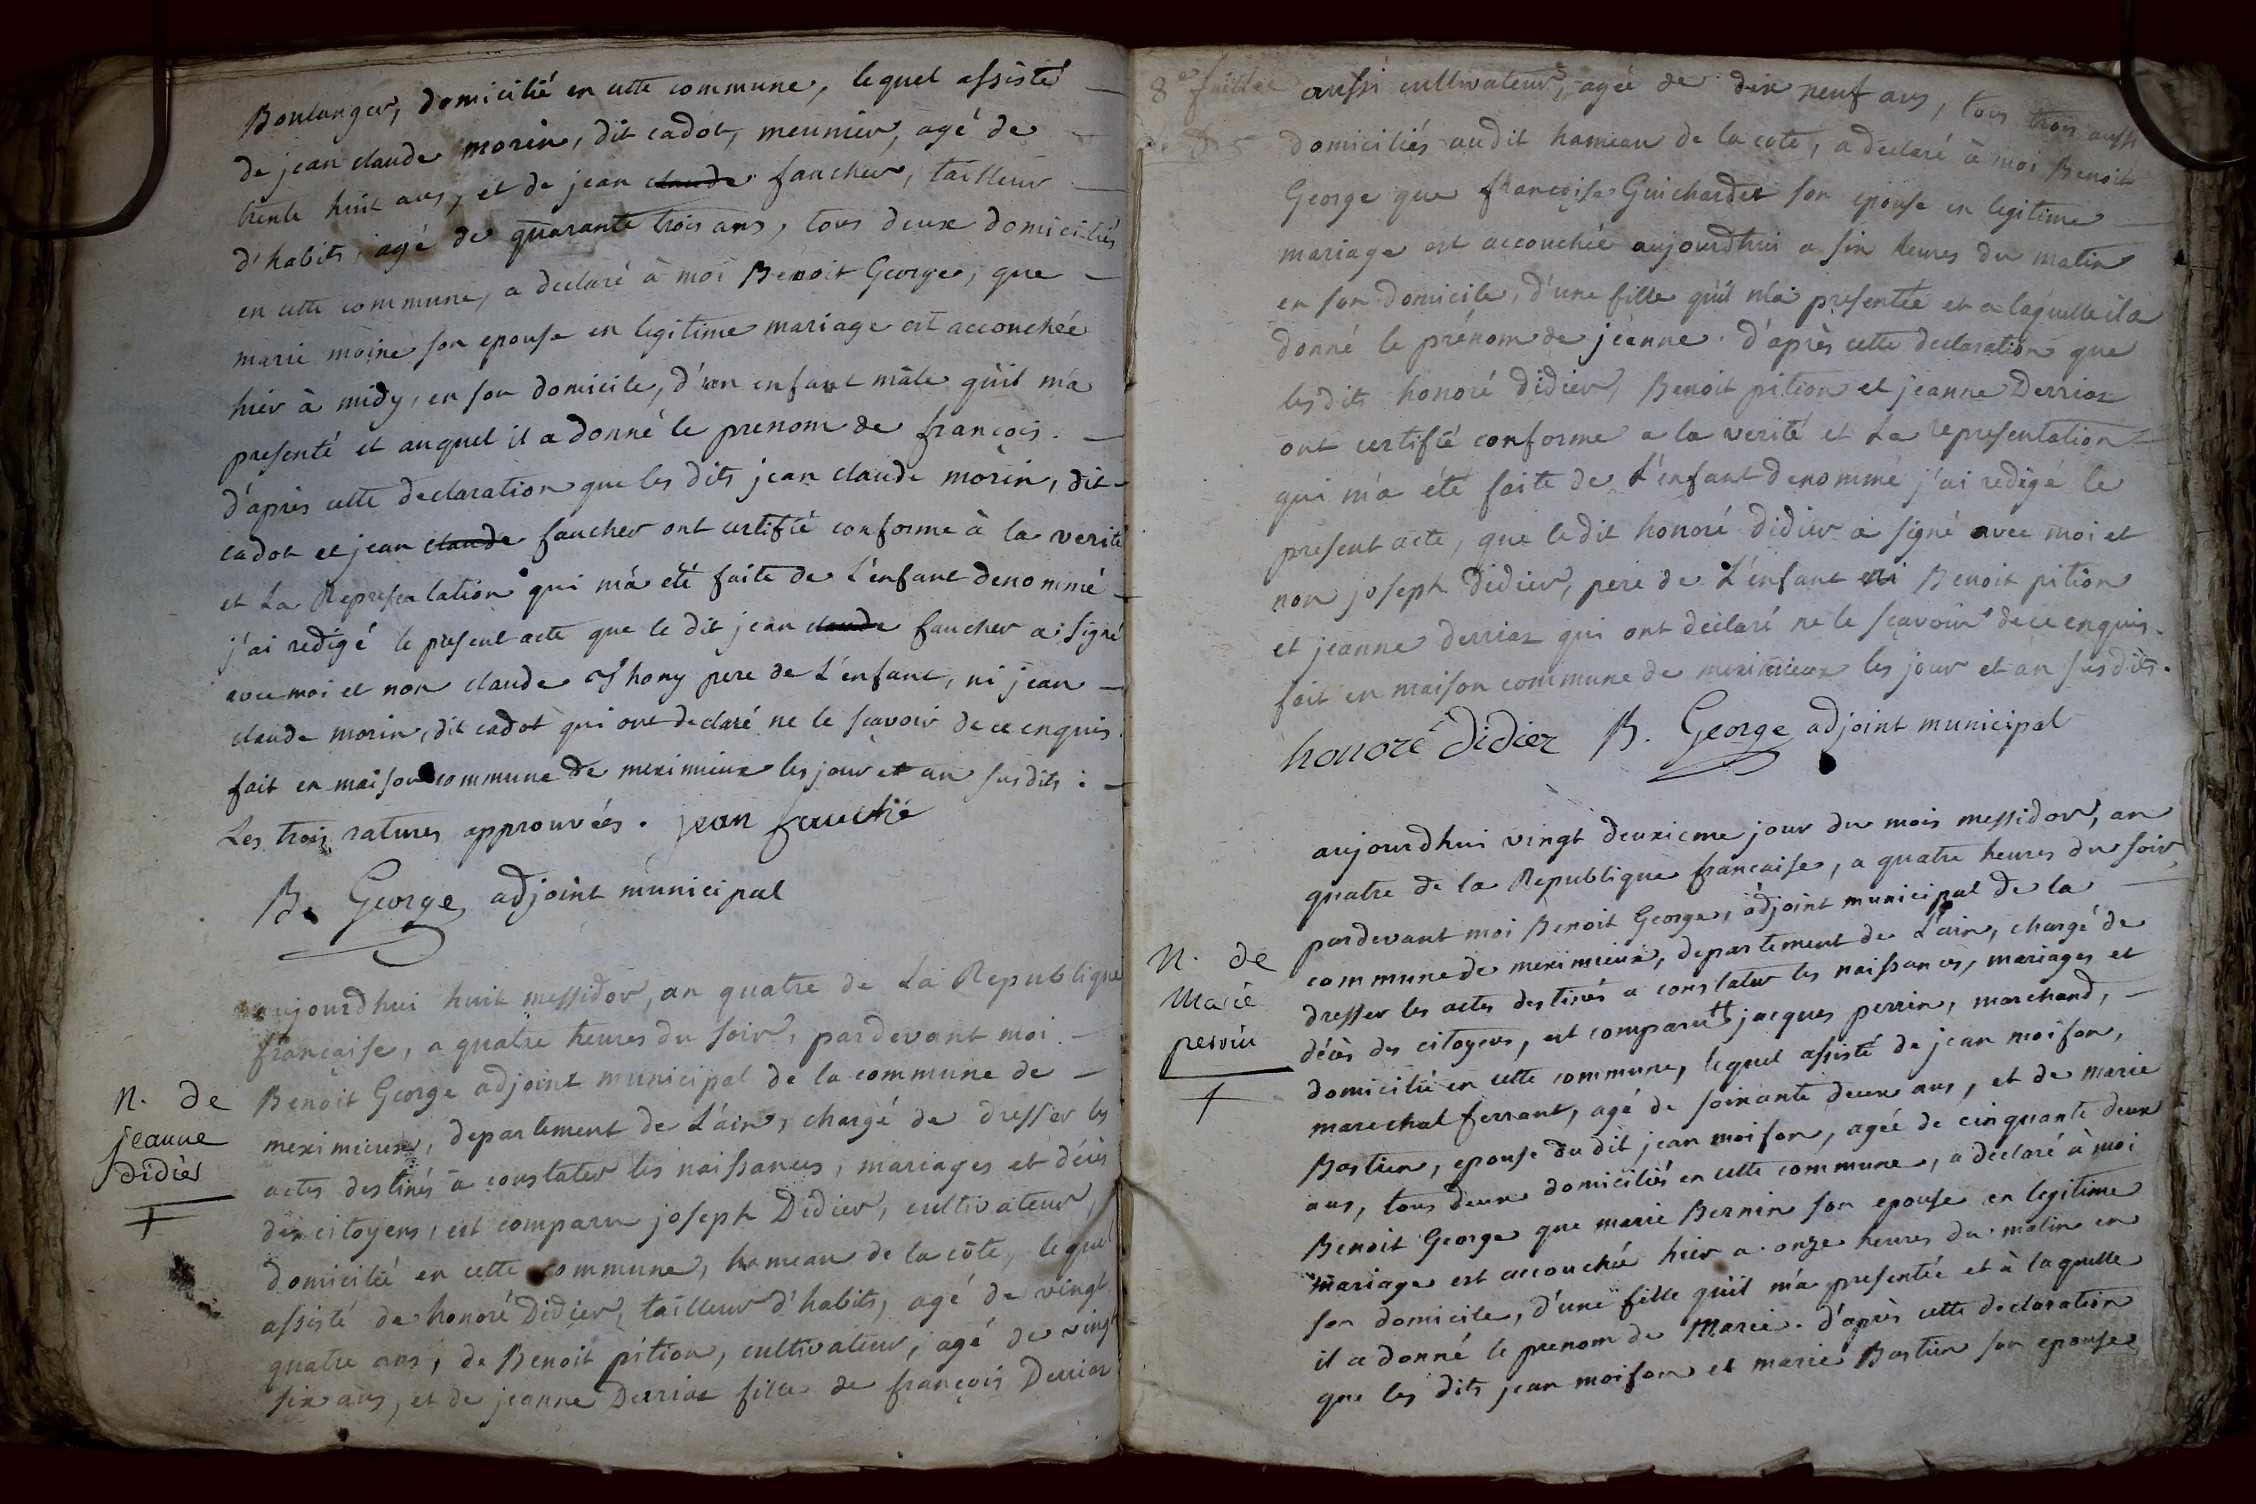 Boulanger, domicilié en cette commune, lequel assisté
de jean claude morin, dit cadot, meunier, agé de
trente huit ans, et de jean claude faucher, tailleur
d'habits, agé de quarante trois ans, tous deux domiciliés
en cette commune, a declaré à moi Benoit George, que
marie moine son epouse en legitime mariage est accouchée
hier à midy, en son domicile, d'un enfant mâle qu'il m'a
presenté et auquel il a donné le prenom de françois.
d'après cette declaration que les dits jean claude morin, dit
cadot et jean claude faucher ont certifié conforme à la verité
et La Representation qui m'a été faite de L'enfant denommé
j'ai redigé le present acte que le dit jean claude faucher a signé
avec moi et non claude Thony pere de L'enfant, ni jean
claude morin, dit cadot qui ont declaré ne le sçavoir de ce enquis.
fait en maison commune de meximieux les jour et an susdits :
Les trois ratures approuvées. jean fauché
B. George adjoint municipal
N. de
jeanne
didier
aujourdhui huit messidor, an quatre de La Republique
française, a quatre heures du soir, pardevant moi
Benoit George adjoint municipal de la commune de
meximieux, departement de L'ain, chargé de dresser les
actes destinés à constater les naissances, mariages et décès
des citoyens, est comparu joseph Didier, cultivateur,
domicilié en cette commune, hameau de la côte, lequel
assisté de honoré Didier, tailleur d'habits, agé de vingt
quatre ans, de Benoit pition, cultivateur, agé de vingt
six ans, et de jeanne Derriaz fille de françois Derriaz
8e feuillet
aussi cultivateur, agée de dix neuf ans, tous trois aussi
domiciliés audit hameau de la cote, a declaré à moi Benoit
George que françoise Guichardet son epouse en legitime
mariage est accouchée aujourdhui a six heures du matin
en son domicile, d'une fille qu'il m'a presentée et a laquelle il a
donné le prénom de jeanne. d'après cette declaration que
lesdits honoré didier, Benoit pition et jeanne Derriaz
ont certifié conforme a la verité et La representation
qui m'a été faite de L'enfant denommé j'ai redigé le
present acte, que ledit honoré didier a signé avec moi et
non joseph Didier, pere de L'enfant ni Benoit pition
et jeanne derriaz qui ont déclaré ne le sçavoir de ce enquis.
fait en maison commune de meximieux les jour et an susdits.
honoré didier B. George adjoint municipal
N. de
Marie
perrin
aujourdhui vingt deuxieme jour du mois messidor, an
quatre de la Republique francaise, a quatre heures du soir,
pardevant moi Benoit George, adjoint municipal de la
commune de meximieux, departement de L'ain, chargé de
dresser les actes destinés a constater les naissances, mariages et
décès des citoyens, est comparu jacques perrin, marchand,
domicilié en cette commune, lequel assisté de jean moison,
marechal ferrant, agé de soixante deux ans, et de marie
Bastien, epouse du dit jean moison, agée de cinquante deux
ans, tous deux domiciliés en cette commune, a déclaré à moi
Benoit George que marie Bernin son epouse en legitime
mariage est accouchée hier a onze heures du matin en
son domicile, d'une fille qu'il m'a presentée et à laquelle
il a donné le prenom de Marie. d'après cette declaration
que les dits jean moison et marie Bastien son epouse